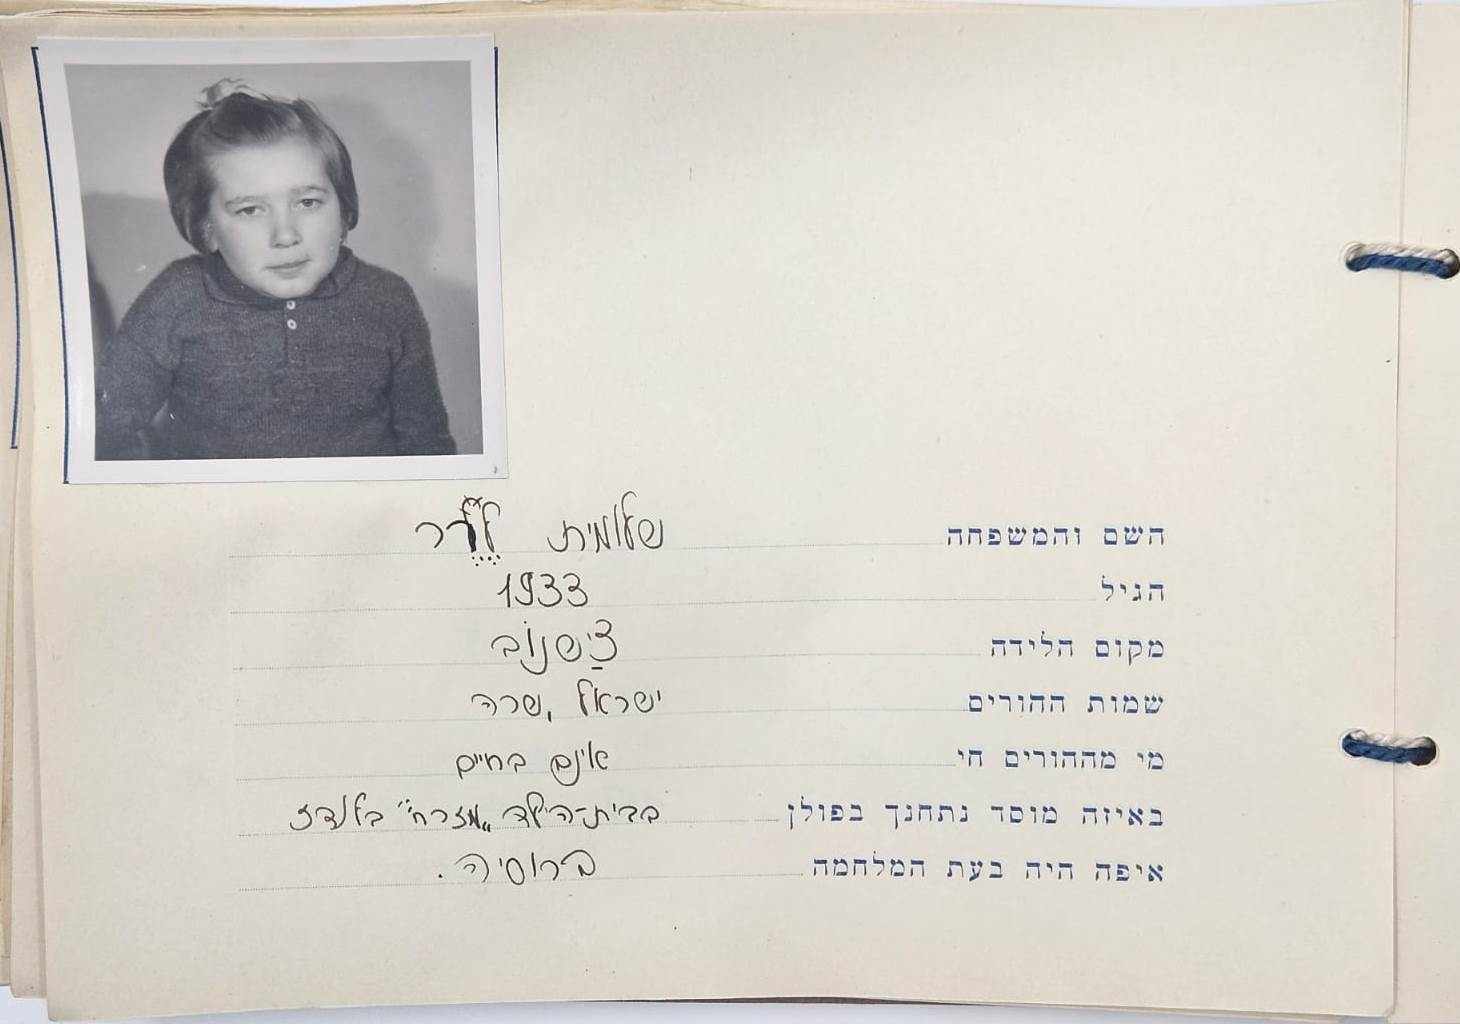 השם והמשפחה שלומית לדר
הגיל 1933
מקום הלידה צ'ישנוב
שמות ההורים ישראל, שרה
מי מההורים חי אינם בחיים
באיזה מוסד נתחנך בפולין בבית-הילד „מזרחי" בלודז
איפה היה בעת המלחמה ברוסיה.